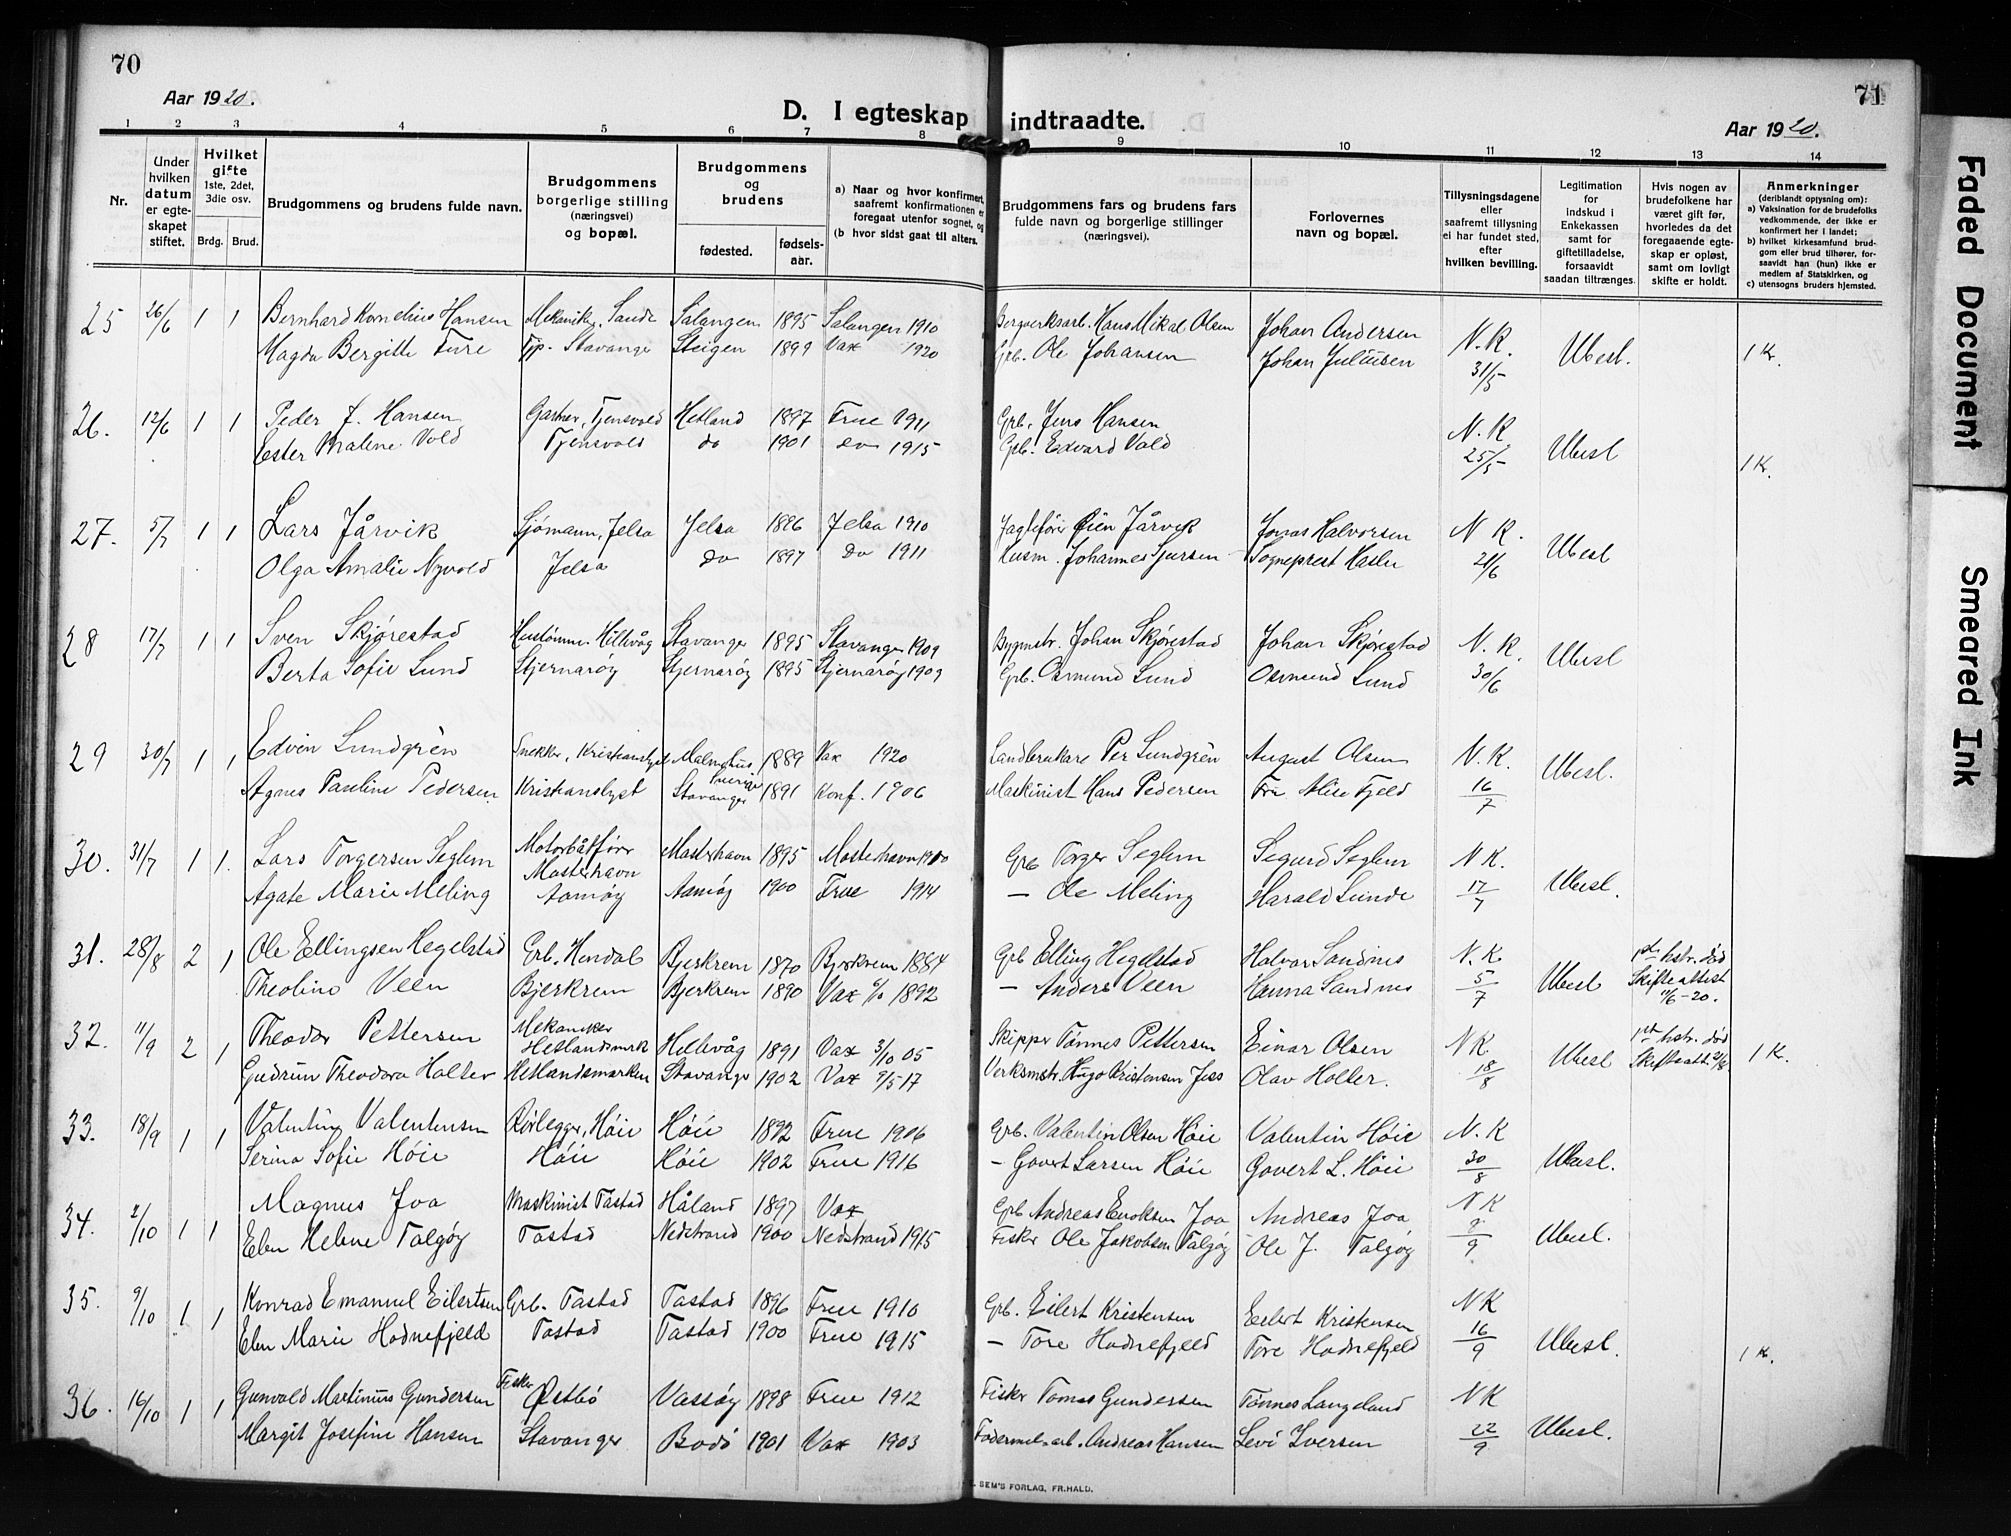 70
71
Aar 1920.
D. I egteskap indtraadte.
Aar 1920.
1 2 3 4 5 6 7 8 9 10 11 12 13 14
Nr.
Under hvilken datum er egteskapet stiftet.
Hvilket gifte 1ste, 2det, 3die osv.
Brdg. Brud.
Brudgommens og brudens fulde navn.
Brudgommens borgerlige stilling (næringsvei) og bopæl.
Brudgommens og brudens
fødested.
fødsels-aar.
a) Naar og hvor konfirmert, saafremt konfirmationen er foregaat utenfor sognet, og
(b hvor sidst gaat til alters.
Brudgommens fars og brudens fars fulde navn og borgerlige stillinger (næringsvei).
Forlovernes navn og bopæl.
Tillysningsdagene eller saafremt tillysning ei har fundet sted, efter hvilken bevilling.
Legitimation for indskud i Enkekassen samt for giftetilladelse, forsaavidt saadan tiltrænges.
Hvis nogen av brudefolkene har været gift før, hvorledes da det foregaaende egteskap er opløst, samt om lovligt skifte er holdt.
Anmerkninger (deriblandt opjysning om):
a) Vaksination for de brudefolks vedkommende, der ikke er konfirmert her i landet;
b) hvilket kirkesamfund brudgom eller brud tilhører, forsaavidt han (hun) ikke er medlem av Statskirken, og
c) utensogns bruders hjemsted.
25 26/6 1 1 Bernhard Kornelius Hansen Mekaniker, Sande Salangen 1895 Salangen 1910 Bergverksarb. Hans Mikal Olsen Johan Andersen N. K. 31/5 Ubesl. 1 Kr.
Magda Bergitte Ture Tjp. Stavanger Steigen 1899 Vax 1920 Grb. Ole Johansen Johan Juliusen
26. 12/6 1 1 Peder J. Hansen Gartner, Tjensvold Hetland 1897 Frue 1911 Grb. Jens Hansen N. K 25/5 Ubesl 1 Kr.
Ester Malene Vold Tjensvold do 1901 do 1915 Grb. Edvard Vold
27. 5/7 1 1 Lars Jårvik Sjømann, Jelsa Jelsa 1896 Jelsa 1910 Jonas Halvorsen N K. 21/6 Ubesl
Olga Amalie Nyvold Jelsa do 1897 do 1911 Husm. Johannes Sjursen Sogneprest Hasle
28 17/7 1 1 Sven Skjørestad Hillevåg Stavanger 1895 Stavanger 1909 Bygmstr. Johan Skjørestad Johan Skjørestad N. K. 30/6 Ubesl
Berta Sofie Lund Stjernarøy Stjernarøy 1895 Stjernarøy 1909 Grb. Osmund Lund Osmund Lund
29 30/7 1 1 Edvin Lundgrèn Snekker, Kristianslyst Malmøhus Sverige 1889 Vax 1920 Landbrukare Per Lundgrèn August Olsen N. K. 16/7 Ubesl.
Agnes Pauline Pedersen Kristianslyst Stavanger 1891 Konf. 1906 Maskinist Hans Pedersen Fru Alice Fjeld
30. 31/7 1 1. Lars Torgersen Seglem Motorbåtfører Mostehavn Mostehavn 1895 Mostehavn 1910 Grb Torger Seglem Sigurd Seglem N K. 17/7 Ubesl.
Agate Marie Meling Aamøy Aamøy 1900 Frue 1914 — Ole Meling Harald Lunde
31. 28/8 2 1 Ole Ellingsen Hegelstad Grb. Hendal Bjerkrem 1870 Bjerkrem 1884 Grb Elling Hegelstad Halvor Sandnes N. K 5/7 Ubesl 1ste hstr. død Skifteattest 11/6-20.
Theoline Veen Bjerkrem Bjerkrem 1890 Vax 1892 — Anders Veen Hanna Sandnes
32. 11/9 2 1 Theodor Pettersen Mekaniker Hetlandsmark Hillevåg 1891 Vax 3/10 05 Skipper Tønnes Pettersen Einar Olsen N K 18/8 Ubesl 1ste hstr. død Skifteatt. 1 Kr.
Gudrun Theodora Holter Hetlandsmarken Stavanger 1902 Vax 9/5 17 Verksmstr. Hugo Kristensen Olav Holter.
33. 18/9 1 1 Valentin Valentinsen Rørlegger, Høie Høie 1892 Frue 1906 Grb. Valentin Olsen Høie Valentin Høie N. K 30/8 Ubesl.
Serina Sofie Høie Høie Høie 1902 Frue 1916 — Govert Larsen Høie Govert L. Høie
34. 2/10 1 1 Magnus Joa Maskinist Tastad Håland 1897 Vax Grb Andreas Enoksen Joa Andreas Joa N K 9/9 Ubesl.
Elen Helene Talgøy Tastad Nedstrand 1900 Nedstrand 1915 Fisker Ole Jakobsen Talgøy Ole J. Talgøy
35. 9/10 1 1 Konrad Emanuel Eilertsen Grb. Tastad Tastad 1896 Frue 1910 Grb. Eilert Kristensen Eilert Kristensen N K 16/9 Ubesl. 1 Kr.
Elen Marie Hodnefjeld Tastad Tastad 1900 Frue 1915 — Tore Hodnefjeld Tore Hodnefjeld
36. 16/10 1 1 Gunvald Martinius Gundersen Fisker Østbø Vassøy 1898 Frue 1912 Fisker Tomas Gundersen Tønnes Langeland N K 22/9 Ubesl.
Margit Josefine Hansen Stavanger Bodø 1901 Vax 1903 Andreas Hansen Levi Iversen
SEM'S FORLAG, FR.HALD.
Faded Document
Smeared Ink